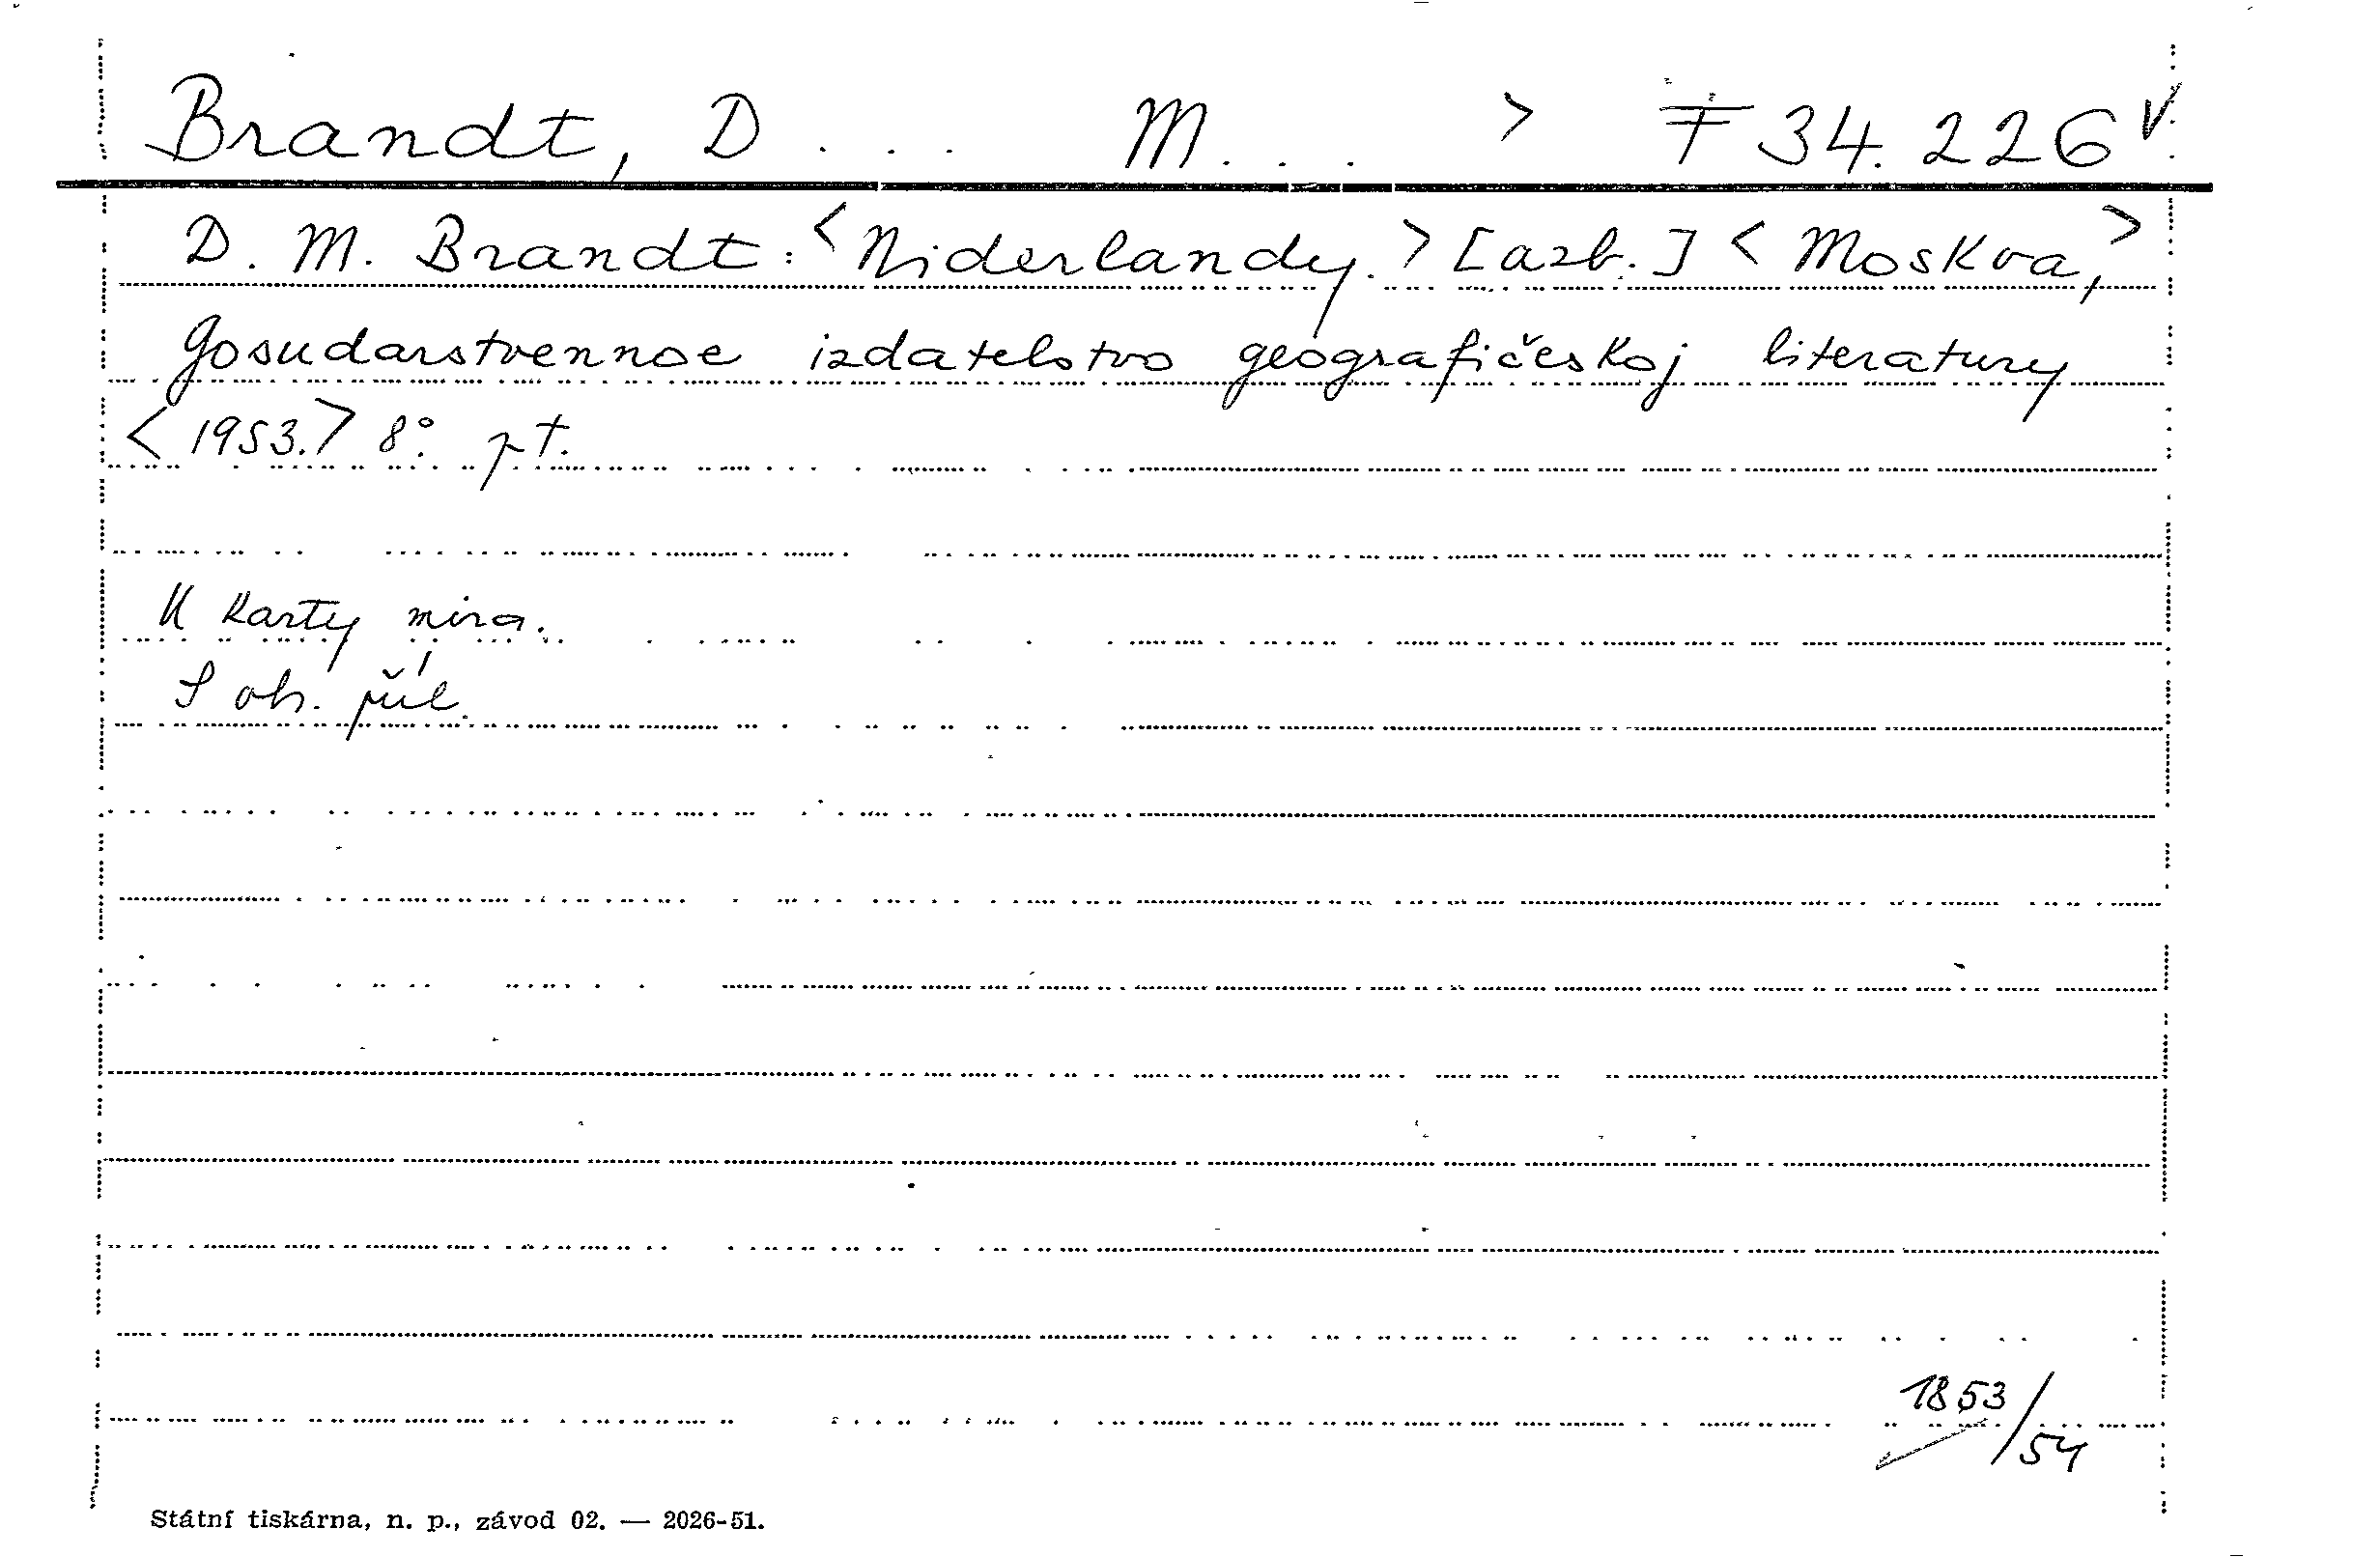 Brandt, D . . . M. . . > F 34.226
D. M. Brandt: <Niderlandy.> [azb.] <Moskva,>
Gosudarstvennoe izdatelstvo geografičeskoj literatury
<1953.> 8°. pt.
U karty mira.
S ob. příl.
1853/54
Státní tiskárna, n. p., závod 02. — 2026-51.